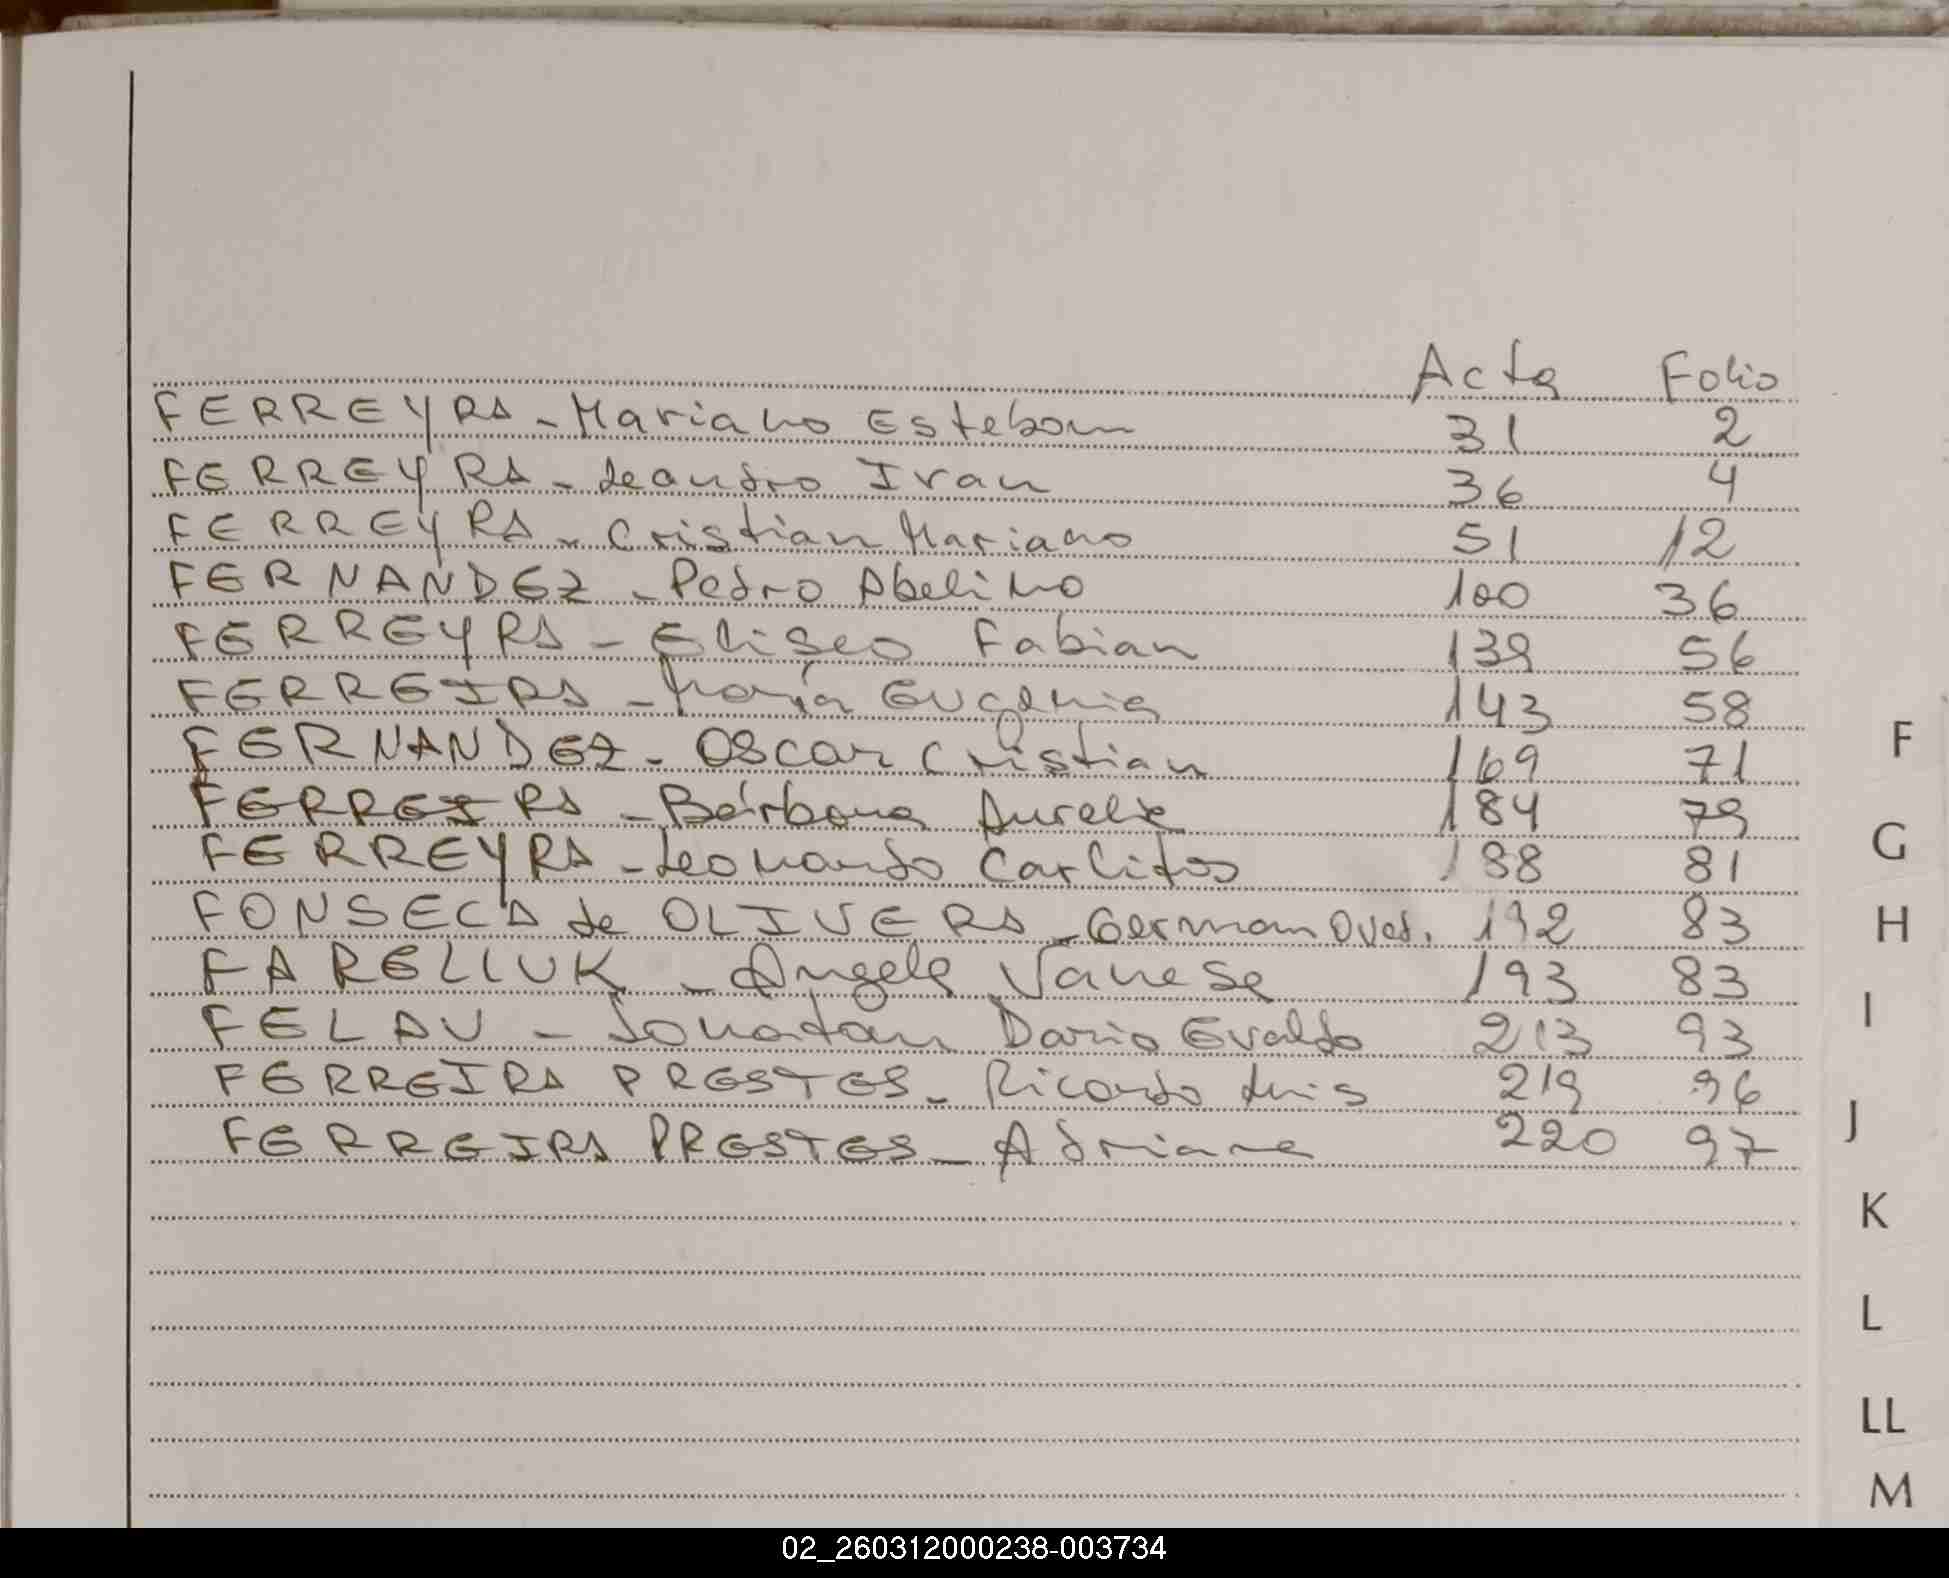 Acta Folio
FERREYRA - Mariano Esteban 31 2
FERREYRA - Leandro Ivan 36 4
FERREYRA - Cristian Mariano 51 12
FERNANDEZ - Pedro Abelino 100 36
FERREYRA - Eliseo Fabian 139 56
FERREIRA - María Eugenia 143 58
FERNANDEZ - Oscar Cristian 169 71
FERREIRA - Bárbara Aurelia 184 79
FERREYRA - Leonardo Carlitos 188 81
FONSECA de OLIVERA - German Oved. 192 83
FARELLUK - Angela Vanesa 193 83
FELAU - Jonatan Dario Evaldo 213 93
FERREIRA PRESTES - Ricardo Luis 219 96
FERREIRA PRESTES - Adriana 220 97
F
G
H
I
J
K
L
LL
M
02_260312000238-003734